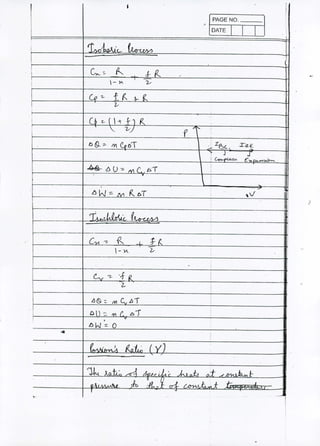 PAGE NO.
DATE
Isobaric Process
Cn = R/(1-n) + f/2 R
Cp = f/2 R + R
Cp = (1 + f/2) R
P
ΔQ = n CpΔT
ΔU = n Cv ΔT
ΔW = n R ΔT
V
Isochloric Process
Cn = R/(1-n) + f/2 R
Cv = f/2 R
ΔQ = n Cv ΔT
ΔU = n Cv ΔT
ΔW = 0
Poission's Ratio (γ)
The ratio of specific heats at constant
pressure to that of constant